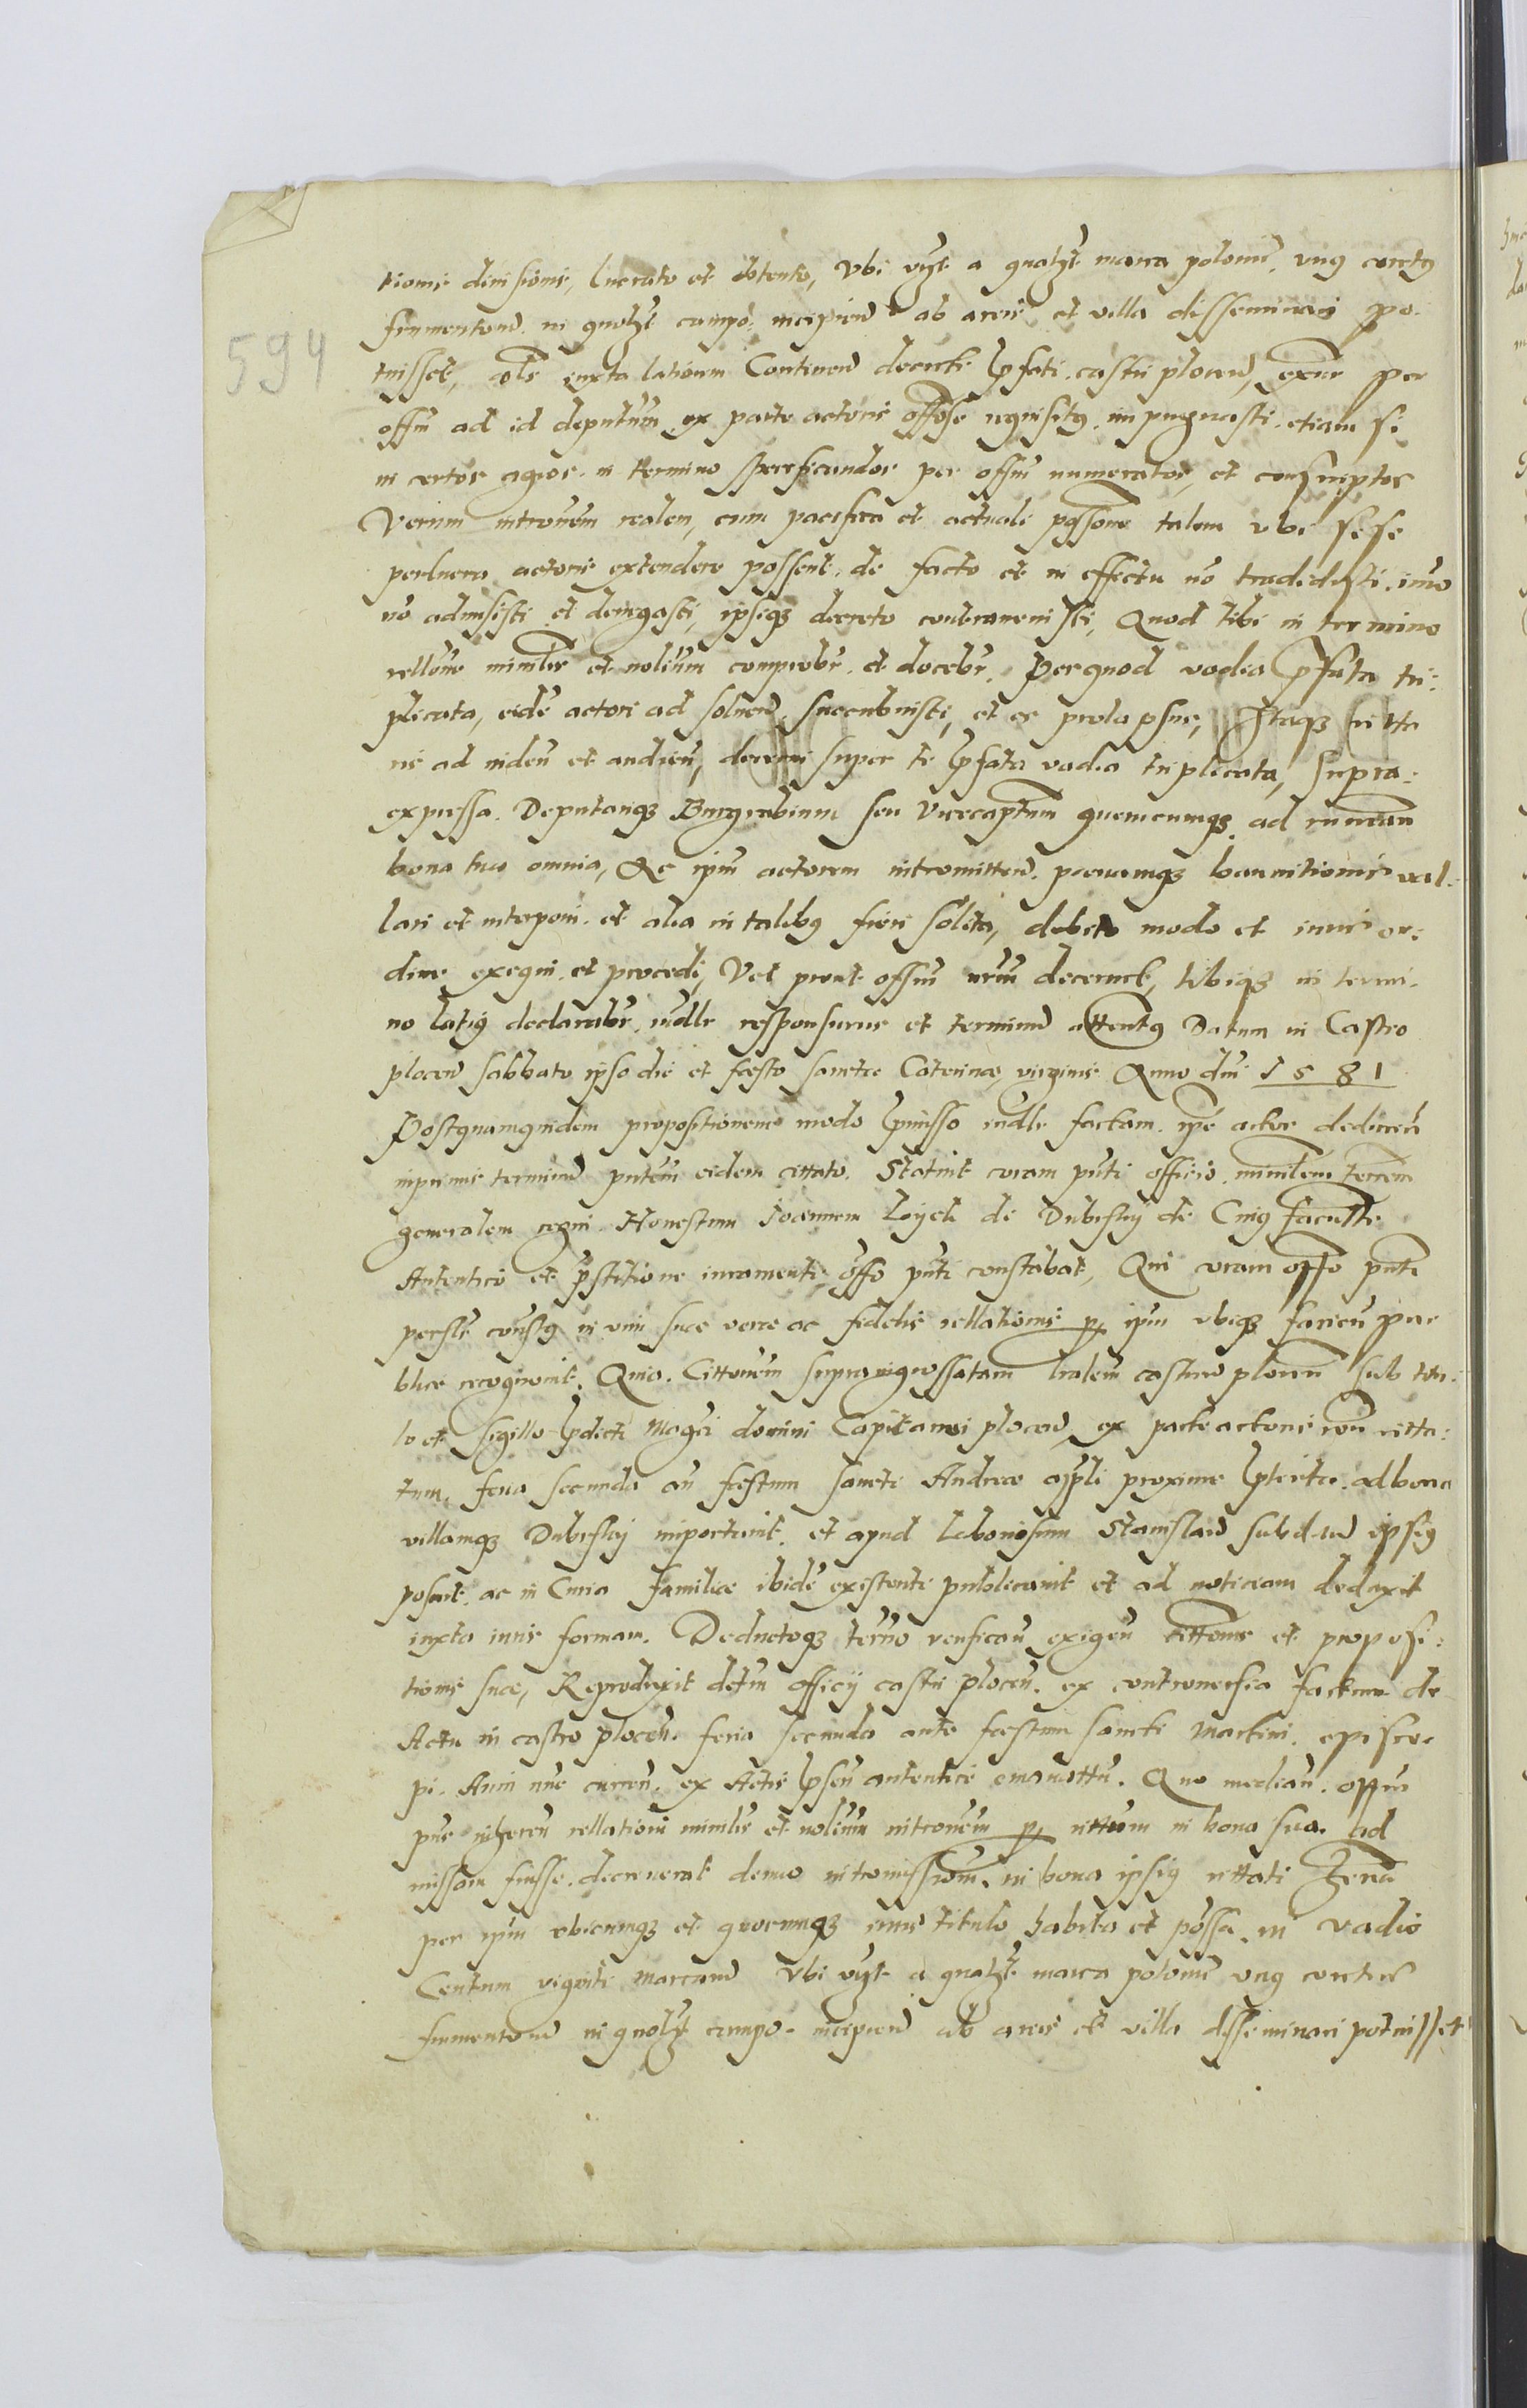 594
tionis divisionis, lucrato et obtento, Vbi vigt a qualzt marca polonie, vnus coretus
frumentorum in quolzt campo incipiend ab areis et villa disseminari po-
tuisset, iuxta lationem Continen decreti pfati castri plocen, per
offm ad id deputum ex parte actoris offose requisitus impugnasti etiam si
in certos agros in termino specificandos per offm numeratos, et conscriptos
Verum introuem realem, cum pacifica et actuali possone talem vbi sese
perlucra actoris extendere possent de facto et in effectu no tradidisti, imo
no admisisti et denegasti, ipsiqz decreto contravenisti, Quod tibi in termino
rellone minilis et nolium comprobr et docebr. Per quod vadia pfata tri-
plicata, eidē actori ad soluend succubuisti, et es prolapsus, Itaqz citta
ris ad viden et audien, decerni super te pfata vadia triplicata, supra-
expressa. Deputariqz Burgrabium seu Vicecaptum quemcumqz ad
bona tua omnia, Ac ipm actorem intromitten. poenamqz bannitionis val-
lari et interponi et alia in talibus fieri solita, debito modo et iuris or-
dine exequi et procedi, Vel prout offm nrm decernet, tibiqz in termi-
no latius declarabr, iudlr responsurus et terminum attentus Datum in Castro
plocen sabbato ipso die et festo sanctae Caterinae virginis Anno dni 1581
Postquamquidem propositionem modo pmisso iudlr factam ipē actor deducen
inprimis terminum pntem eidem cittato. Statuit coram pnti officio minilem terrem
generalem regni Honestum Joannem Loyek de Dubrsky de Cuius facultte
Autentica et pstitione iuramenti offo pnti constabat, Qui coram offo pnti
perslr constus in vim suae verae ac fidelis rellationis p ipm vbiqz facien pu
blice recognovit. Quia Cittonem supraingrossatam lralem castren plocen sub titu-
lo et sigillo pdicti Magci domini Capitanei plocen ex parte actoris citta-
tum, feria secunda an festum sancti Andreae appli proxime pterita ad bona
villamqz Dubrsky importavit. et apud laboriosum Stanislaum subdtum ipsius
posuit. ac in Curia familiae ibidē existenti publicavit et ad noticiam deduxit
iuxta iuris formam. Deductoqz termo verifican exigen cittonis et proposi-
tionis suae, Reproduxit detm officij castri plocen. ex controversia factum de
Actu in castro plocen feria secunda ante festum sancti Martini episco-
pi Anni nunc curren. ex Actis psen autentice emanattm. Quo median. offm
pns inheren rellationi minilis et nolium introuem p cittum in bona sua Ad
missam fuisse decreverat denuo intromissionem. in bona ipsius cittati
per ipm vbicumqz et quocumqz iuris titulo habita et possa in vadio
Centum viginti marcarum Vbi vigt a qualzt marca polonie vnus coretus
frumentorum in quolzt campo incipiend ab areis et villa disseminari potuisset